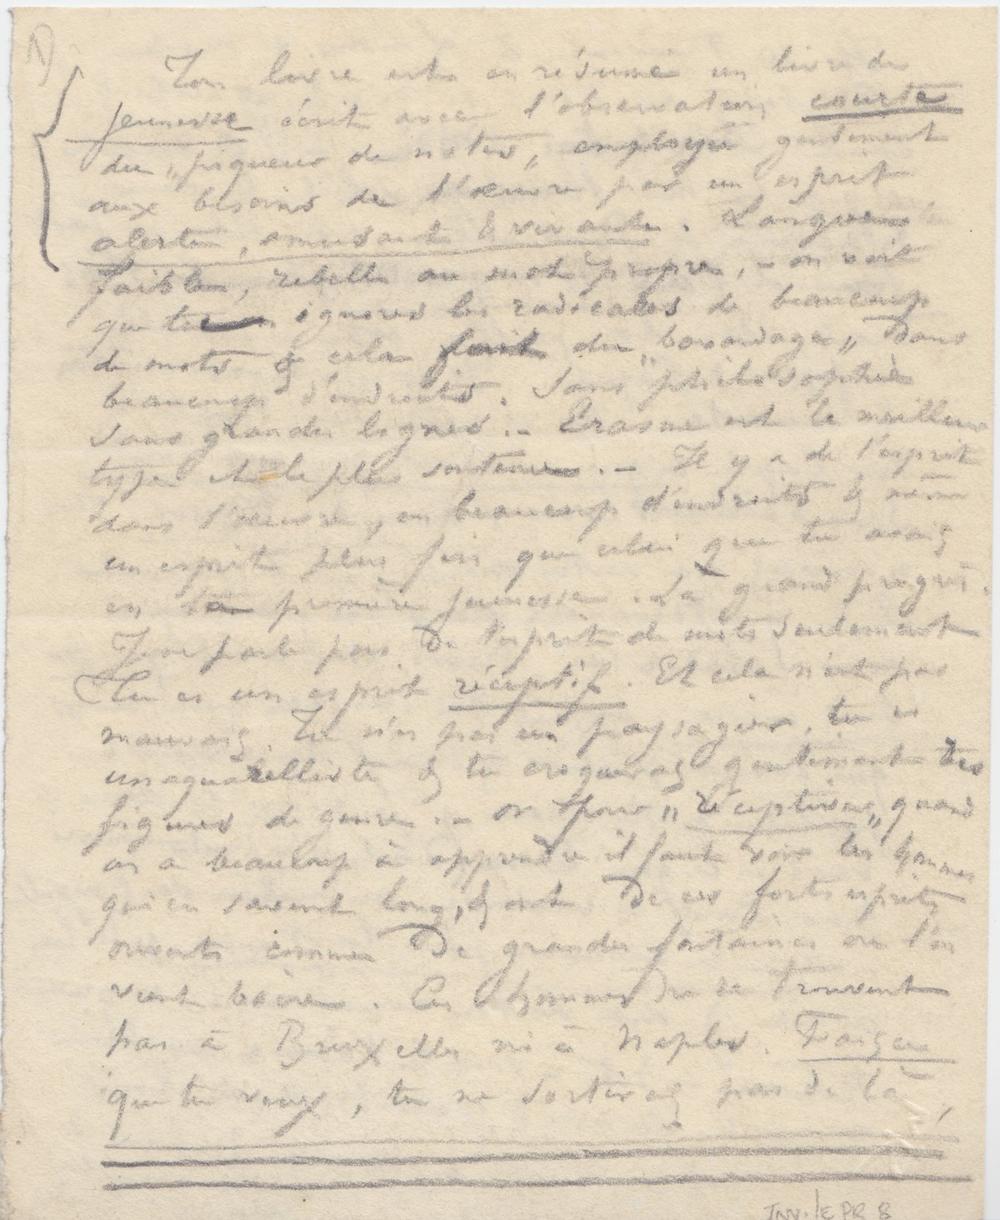 1)
Ton livre est en résumé un livre de
jeunesse écrit avec l'observation courte
du „piqueur de notes„ employé gentiment
aux besoins de l'œuvre par un esprit
alerte, amusant & vivant. Langue
faible, rebelle au mot propre, – on voit
que tu ignores les radicales de beaucoup
de mots & cela fait du „bavardage„ dans
beaucoup d'endroits. Sans philosophie
sans grandes lignes. – Erasme est le meilleur
type et le plus soutenu. – Il y a de l'esprit
dans l'œuvre, en beaucoup d'endroits & même
un esprit plus fin que celui que tu avais
en ta première jeunesse. Là grand progrès.
Je ne parle pas de l'esprit de mots seulement
Tu es un esprit réceptif. Et cela n'est pas
mauvais. Tu n'es pas un paysagiste, tu es
un aquarelliste & tu croqueras gentiment tes
figures de genre. – or pour „réceptives„ quand
on a beaucoup à apprendre il faut voir les hommes
qui en savent long, & sont de ces forts esprits
ouverts comme de grandes fontaines où l'on
vient boire. Ces hommes ne se trouvent
pas à Bruxelles ni à Naples. Fais ce
que tu veux, tu ne sortiras pas de là,
Inv. LE PR 8